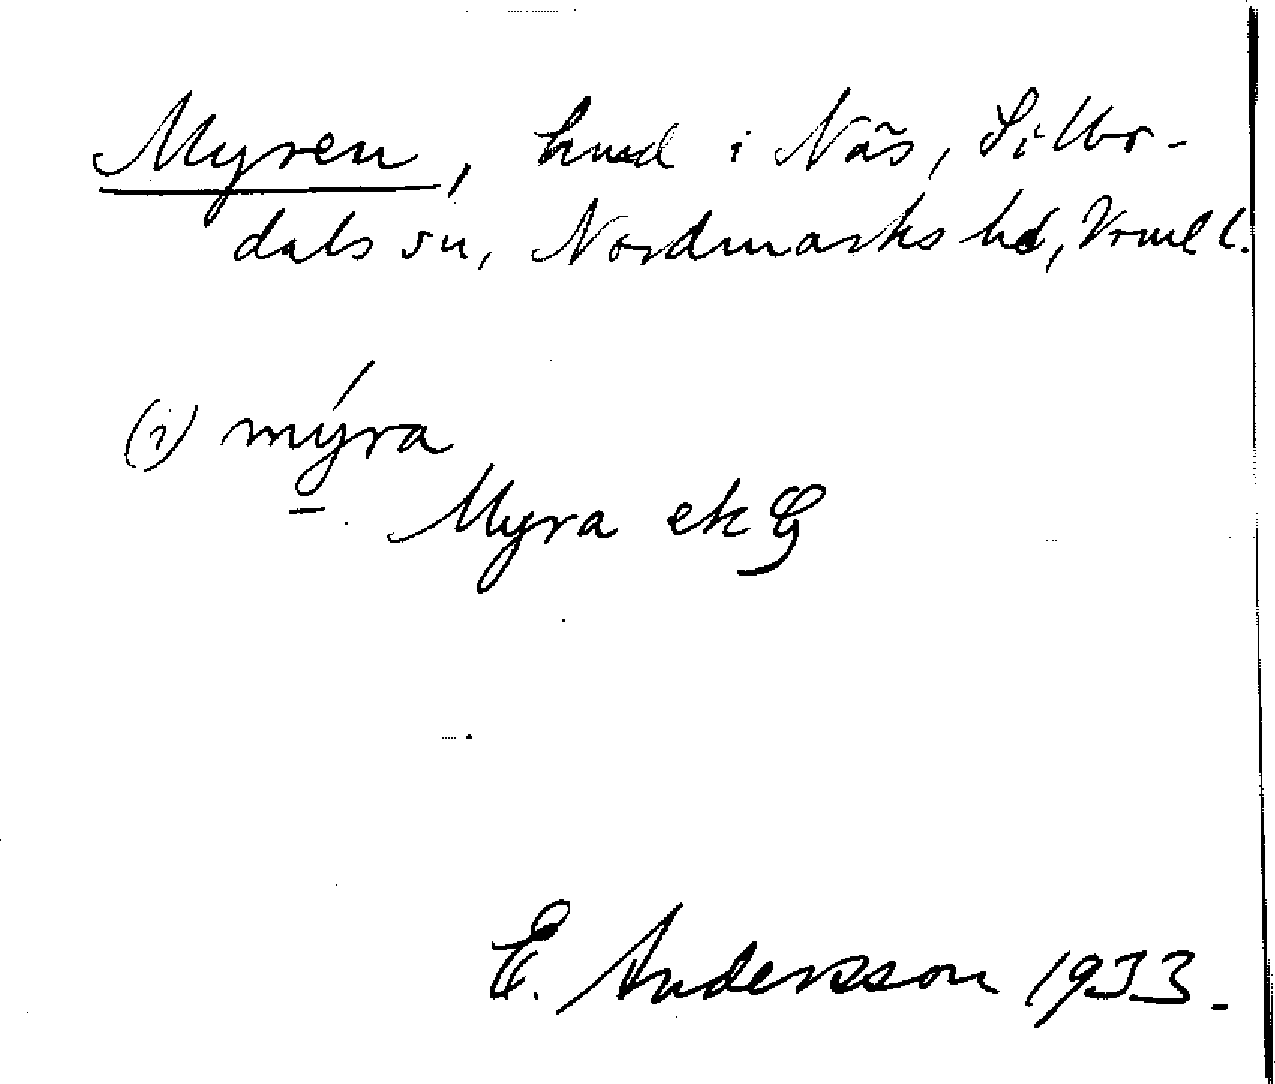 Myren, hmd i Näs, Sillbo-
dals sn, Nordmarks hd, Vrml l.
(i) mýra
Myra ek
E. Andersson 1933.